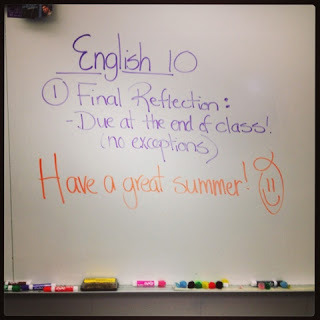 English 10
① Final Reflection:
- Due at the end of class!
(no exceptions)
Have a great summer!